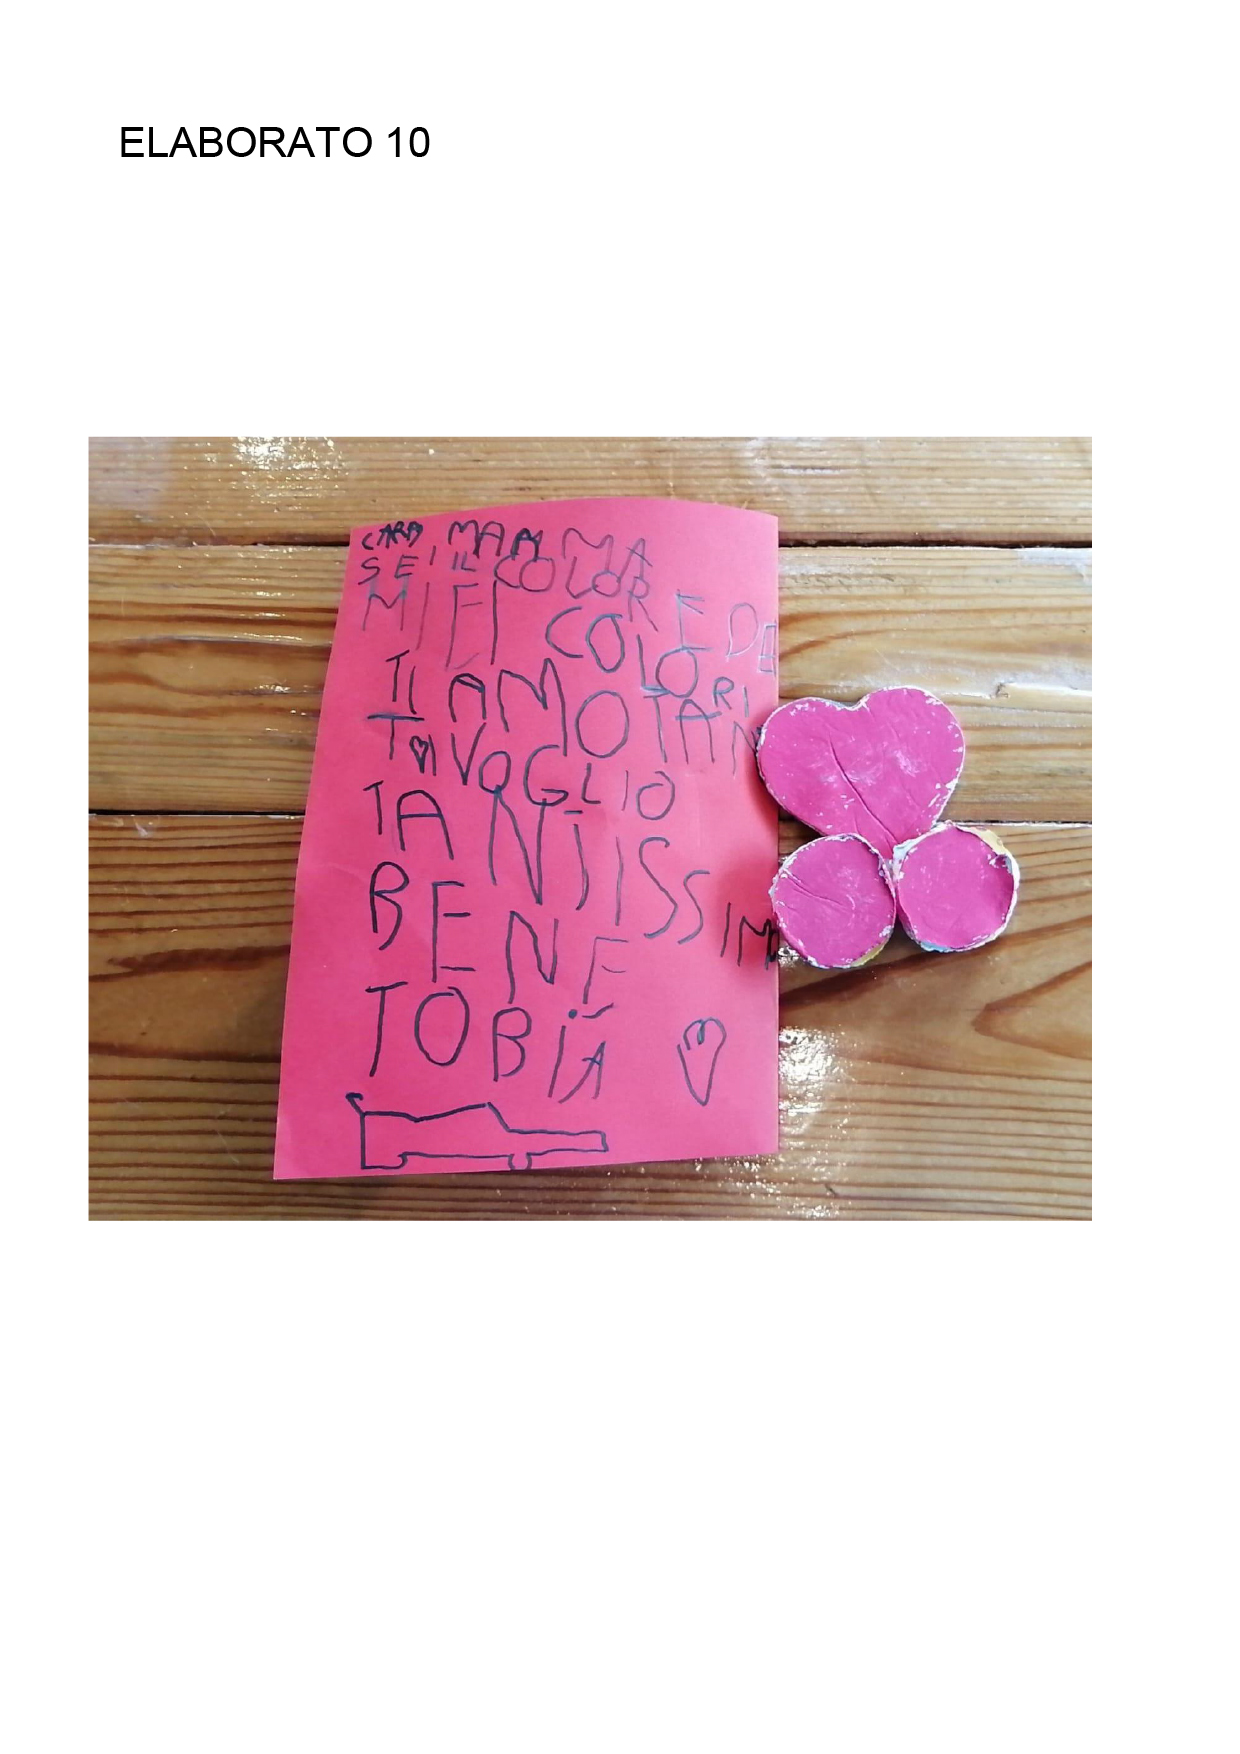 ELABORATO 10
CARA MAMMA
SEI IL COLORE DE
MIEI COLORI
TI AMO TAN
VOGLIO
TANTISSIMO
BENE
TOBIA